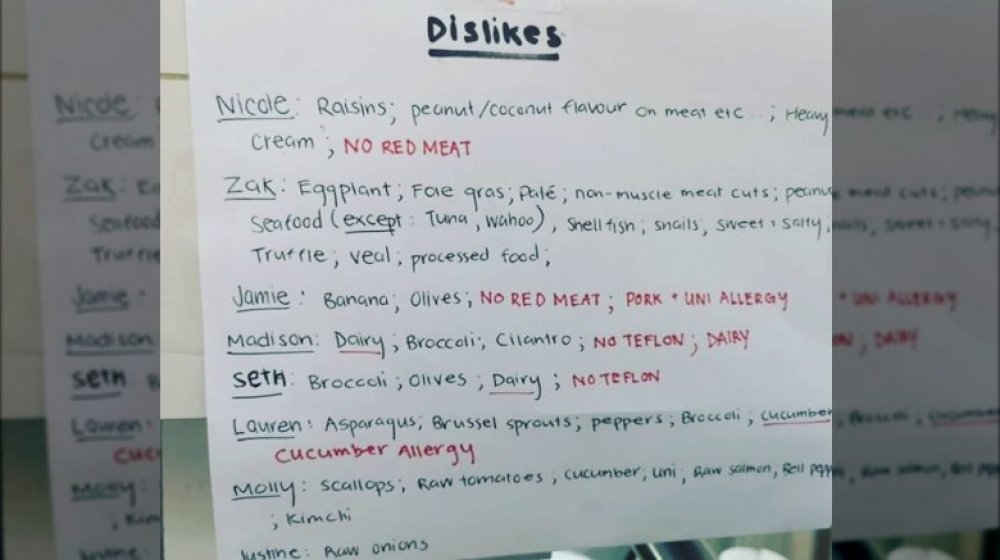 Dislikes
Nicole: Raisins; peanut/coconut flavour on meat etc..; Heavy
cream; NO RED MEAT
Zak: Eggplant; Foie gras; Paté; non-muscle meat cuts;
Seafood (except: Tuna, wahoo), Shellfish; snails, sweet + salty;
Truffle; veal; processed food;
Jamie: Banana; Olives; NO RED MEAT; PORK + UNI ALLERGY
Madison: Dairy; Broccoli; Cilantro; NO TEFLON; DAIRY
Seth: Broccoli; Olives; Dairy; NO TEFLON
Lauren: Asparagus; Brussel sprouts; peppers; Broccoli; cucumber
Cucumber Allergy
Molly: scallops; Raw tomatoes; cucumber; uni; Raw salmon, Bell
; Kimchi
Justine: Raw onions